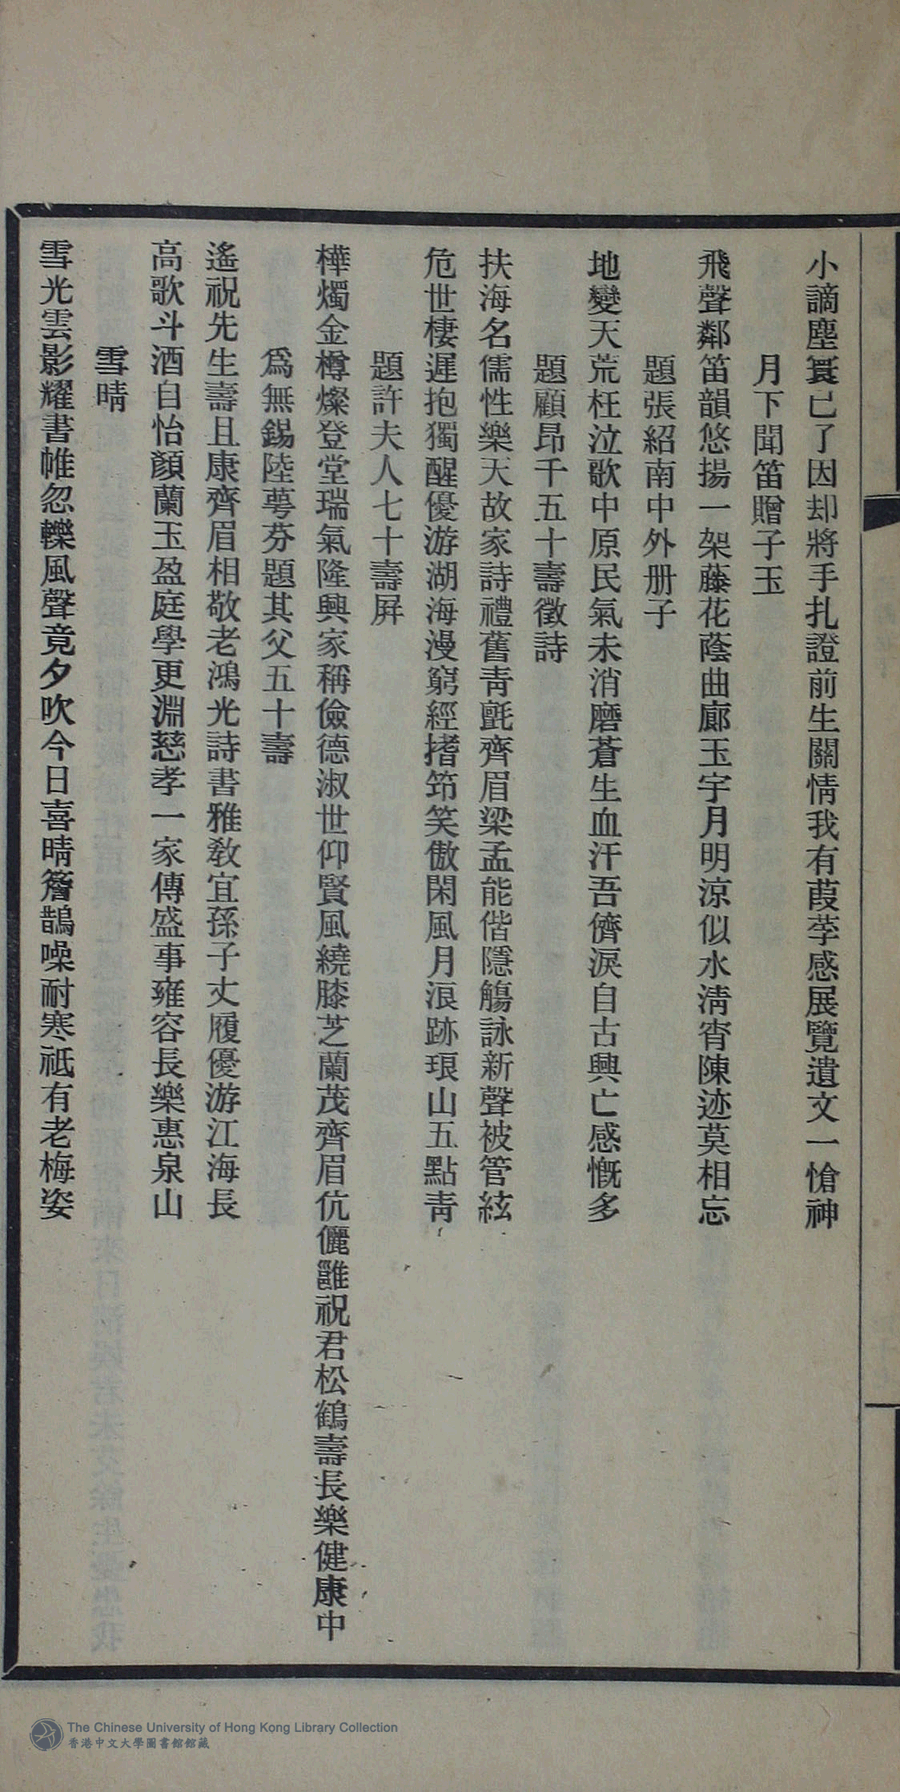 小謫塵寰已了因却將手扎證前生關情我有葭莩感展覽遺文一愴神
月下聞笛贈子玉
飛聲鄰笛韻悠揚一架藤花蔭曲廊玉宇月明涼似水淸宵陳迹莫相忘
題張紹南中外册子
地變天荒枉泣歌中原民氣未消磨蒼生血汗吾儕淚自古興亡感慨多
題顧昂千五十壽徵詩
扶海名儒性樂天故家詩禮舊靑氈齊眉梁孟能偕隱觴詠新聲被管絃
危世棲遲抱獨醒優游湖海漫窮經搘筇笑傲閑風月浪跡琅山五點靑
題許夫人七十壽屏
樺燭金樽燦登堂瑞氣隆興家稱儉德淑世仰賢風繞膝芝蘭茂齊眉伉儷雝祝君松鶴壽長樂健康中
爲無錫陸蕚芬題其父五十壽
遙祝先生壽且康齊眉相敬老鴻光詩書雅敎宜孫子丈履優游江海長
高歌斗酒自怡顏蘭玉盈庭學更淵慈孝一家傳盛事雍容長樂惠泉山
雪晴
雪光雲影耀書帷忽轢風聲竟夕吹今日喜晴簷鵲噪耐寒祗有老梅姿
The Chinese University of Hong Kong Library Collection
香港中文大學圖書館館藏